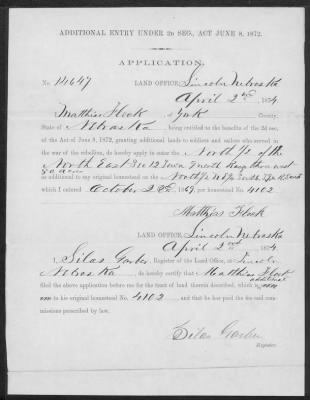 ADDITIONAL ENTRY UNDER 2D SEC., ACT JUNE 8, 1872.
APPLICATION.
No. 14647 LAND OFFICE, Lincoln Nebraska
April 2nd 1874
I, Matthias Flock of York County,
State of Nebraska being entitled to the benefits of the 2d sec.
of the Act of June 8, 1872, granting additional lands to soldiers and sailors who served in
the war of the rebellion, do hereby apply to enter the North ½ of the
North East 3 12 Town 9 north Range three west
80 acres
as additional to my original homestead on the North ½ N E ¼
which I entered October 2 1869 per homestead No. 4102
Matthias Flock
LAND OFFICE, Lincoln Nebraska
April 2nd 1874
I, Silas Garber, Register of the Land Office, at Lincoln
Nebraska do hereby certify that Matthias Flock
filed the above application before me for the tract of land therein described, which is additional
to his original homestead No. 4102 and that he has paid the fee and com-
missions prescribed by law.
Silas Garber
Register.